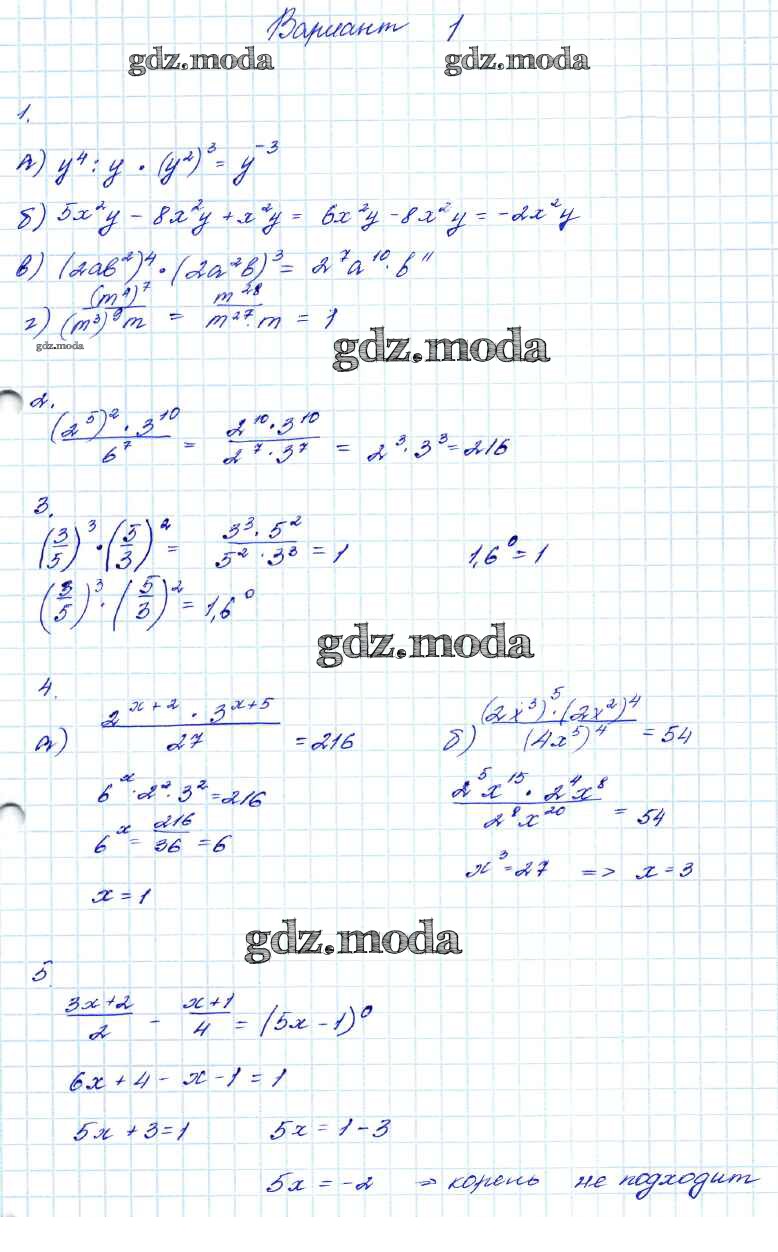 Вариант 1
gdz.moda gdz.moda
1.
а) y⁴ : y · (y²)³ = y⁻³
б) 5x²y − 8x²y + x²y = 6x²y − 8x²y = −2x²y
в) (2ab²)⁴ · (2a²b)³ = 2⁷a¹⁰ · b¹¹
г) (m⁴)⁷ / (m³)⁹m = m²⁸ / m²⁷ · m = 1
gdz.moda
gdz.moda
2.
(2⁵)² · 3¹⁰ / 6⁷ = 2¹⁰ · 3¹⁰ / 2⁷ · 3⁷ = 2³ · 3³ = 216
3.
(3/5)³ · (5/3)² = 3³ · 5² / 5² · 3³ = 1 1,6⁰ = 1
(3/5)³ · (5/3)² = 1,6⁰
gdz.moda
4.
а) 2ˣ⁺² · 3ˣ⁺⁵ / 27 = 216
6ˣ · 2² · 3² = 216
6ˣ = 216/36 = 6
x = 1
б) (2x³)⁵ · (2x²)⁴ / (4x⁵)⁴ = 54
2⁵x¹⁵ · 2⁴x⁸ / 2⁸x²⁰ = 54
x³ = 27 => x = 3
gdz.moda
5.
3x+2 / 2 − x+1 / 4 = (5x − 1)⁰
6x + 4 − x − 1 = 1
5x + 3 = 1 5x = 1 − 3
5x = −2 ⇒ корень не подходит